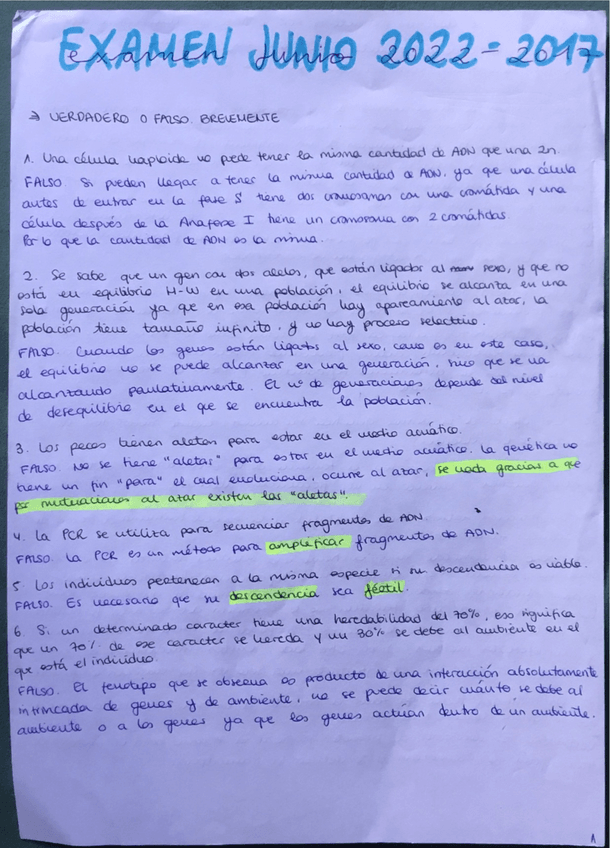 EXAMEN JUNIO 2022-2017
→ VERDADERO O FALSO. BREVEMENTE
1. Una célula haploide no puede tener la misma cantidad de ADN que una 2n.
FALSO. Si pueden llegar a tener la misma cantidad de ADN, ya que una célula
antes de entrar en la fase S tiene dos cromosomas con una cromátida y una
célula después de la Anafase I tiene un cromosoma con 2 cromátidas.
Por lo que la cantidad de ADN es la misma.
2. Se sabe que un gen con dos alelos, que están ligados al sexo, y que no
está en equilibrio H-W en una población, el equilibrio se alcanza en una
sola generación ya que en esa población hay apareamiento al azar, la
población tiene tamaño infinito, y no hay proceso selectivo.
FALSO. Cuando los genes están ligados al sexo, como es en este caso,
el equilibrio no se puede alcanzar en una generación, sino que se va
alcanzando paulatinamente. El nº de generaciones depende del nivel
de desequilibrio en el que se encuentra la población.
3. Los peces tienen aletas para estar en el medio acuático.
FALSO. No se tiene "aletas" para estar en el medio acuático. La genética no
tiene un fin "para" el cual evoluciona, ocurre al azar, se nada gracias a que
por mutaciones al azar existen las "aletas".
4. La PCR se utiliza para secuenciar fragmentos de ADN.
FALSO. La PCR es un método para amplificar fragmentos de ADN.
5. Los individuos pertenecen a la misma especie si su descendencia es viable.
FALSO. Es necesario que su descendencia sea fértil.
6. Si un determinado caracter tiene una heredabilidad del 70%, eso significa
que un 70% de ese caracter se hereda y un 30% se debe al ambiente en el
que está el individuo.
FALSO. El fenotipo que se observa es producto de una interacción absolutamente
intrincada de genes y de ambiente, no se puede decir cuánto se debe al
ambiente o a los genes ya que los genes actúan dentro de un ambiente.
1